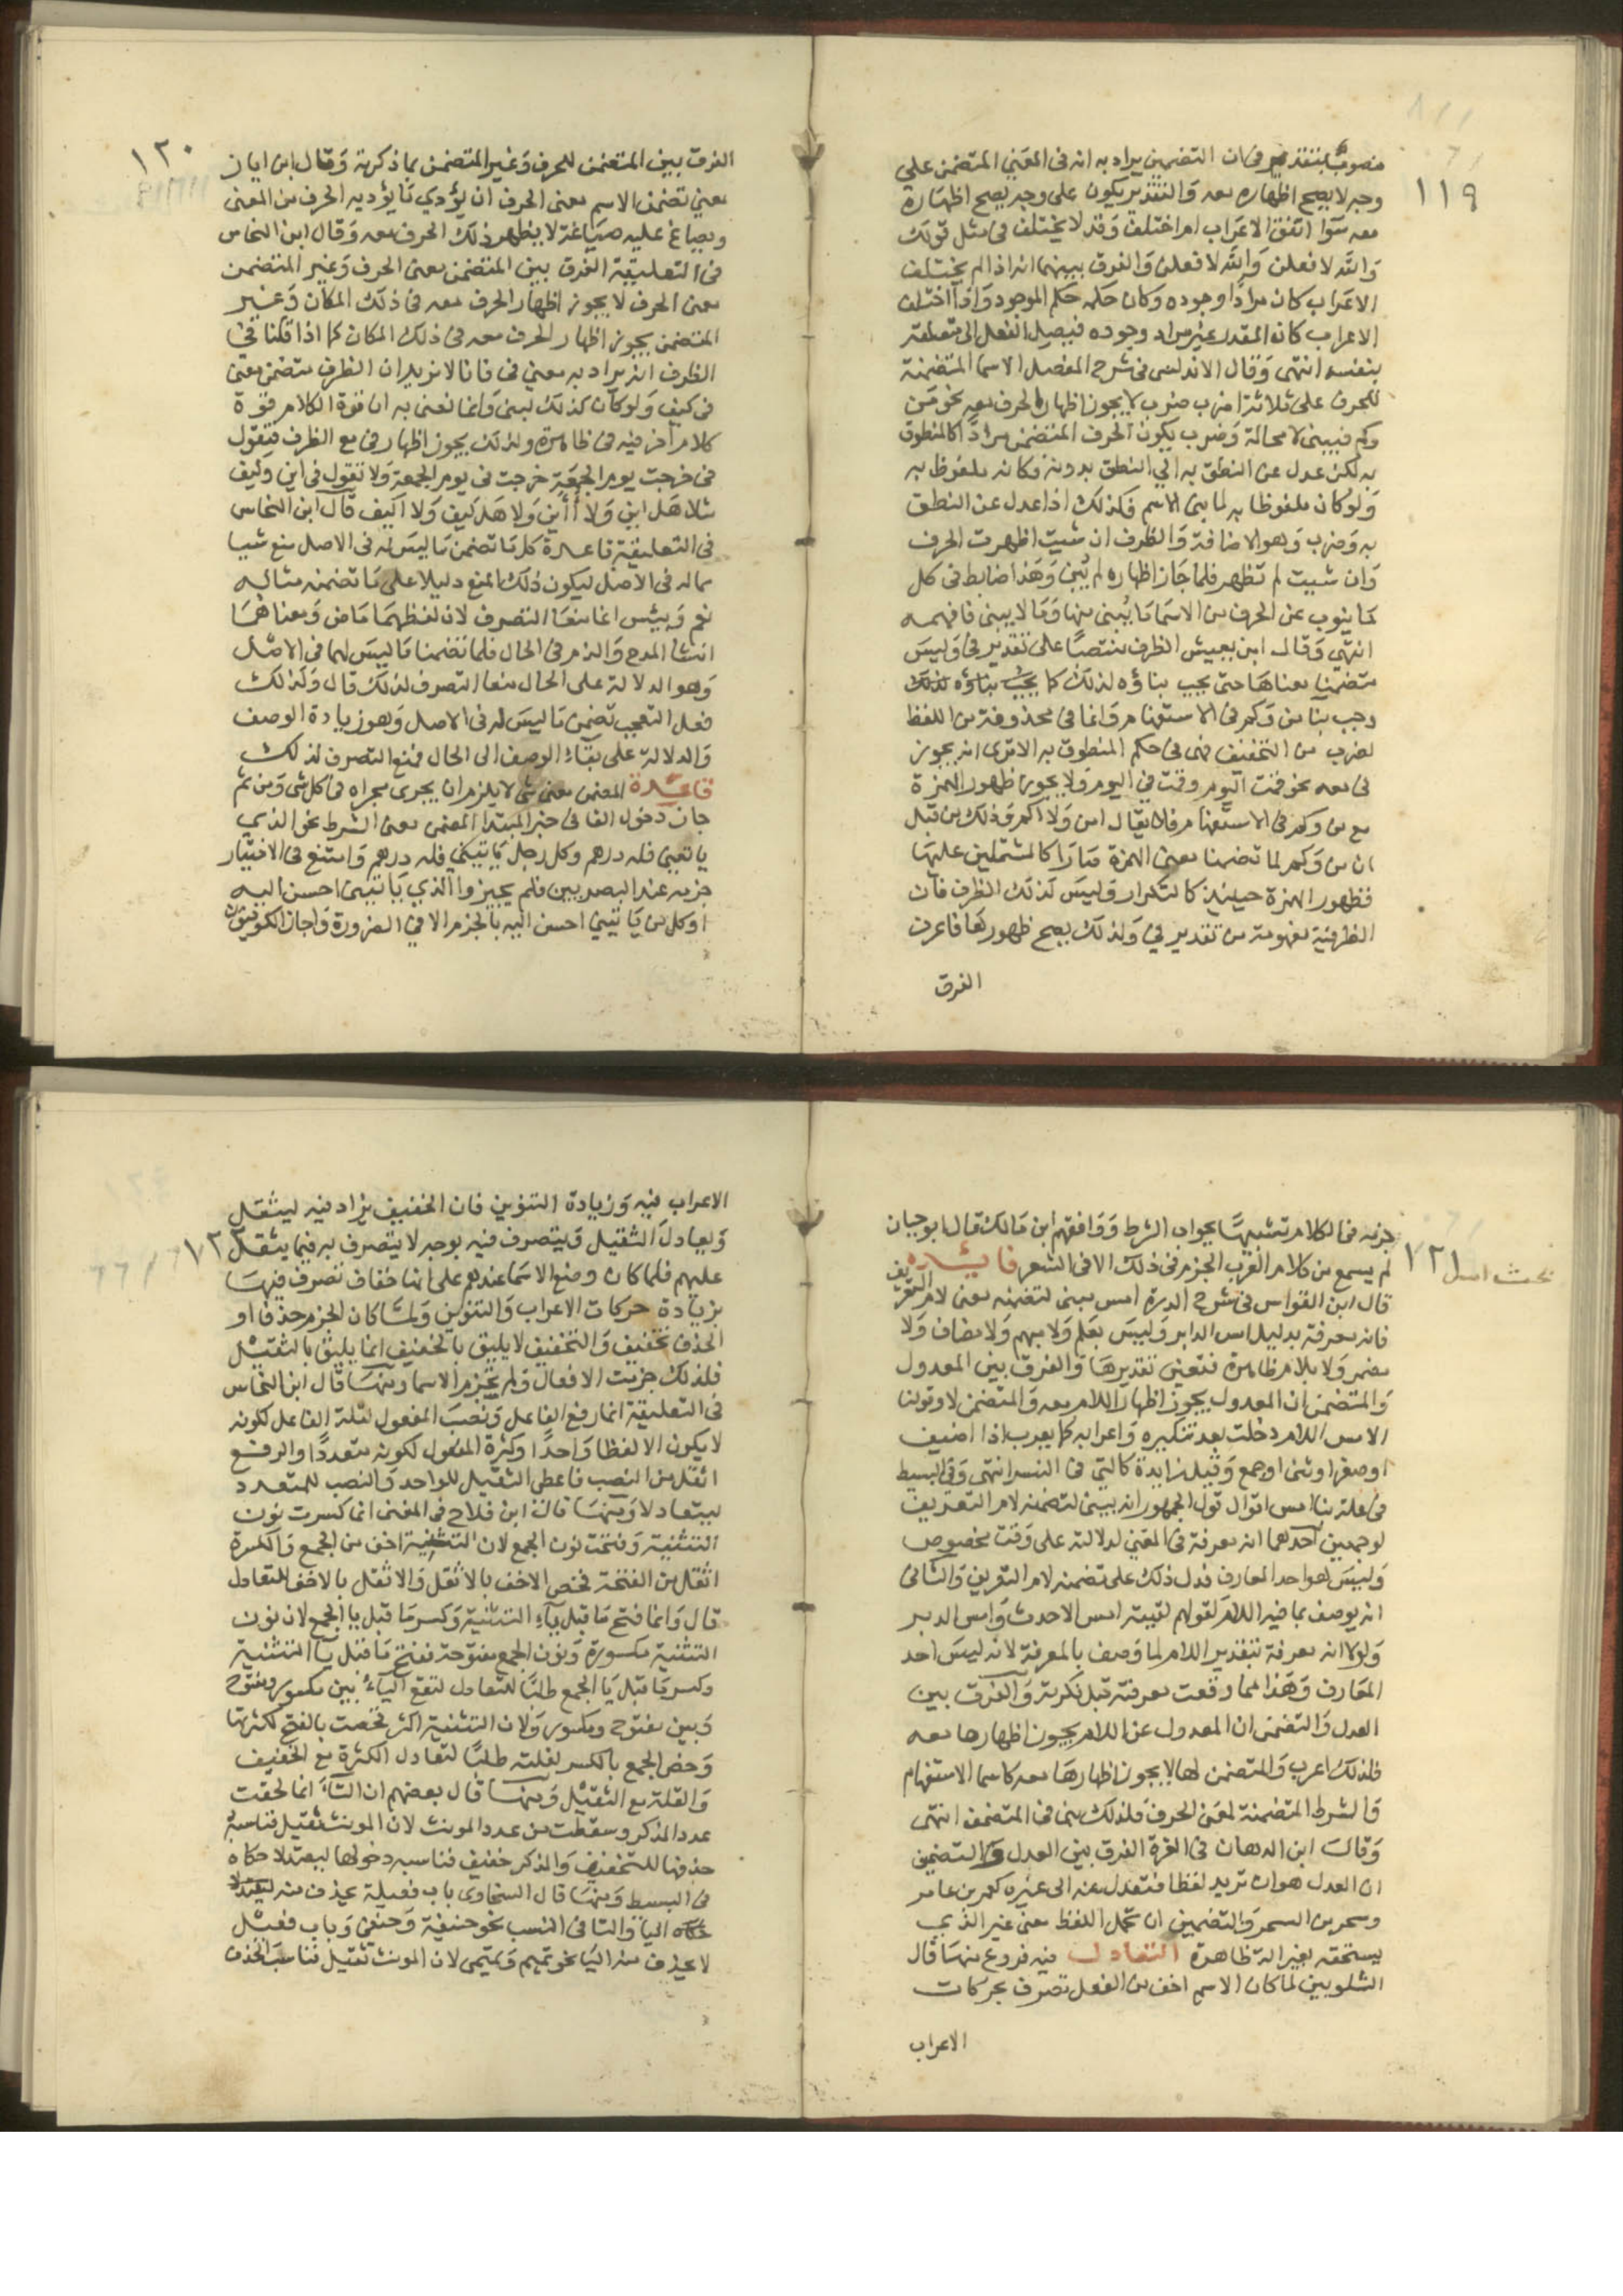 ١١٩
منصوب بتقدير في ان التضمين يراد به انه في المعنى المتضمن على
وجه لا يصح اظهاره معه وَالتقدير يكون على وجه يصح اظهاره
معه سَوَا اتفق الاعراب امر اختلف وَقد لا يختلف في مثل قولك
وَالله لافعلن وَالله لافعلن وَالفرق بينهما انه اذا لم يختلف
الاعراب كان مرادًا وجوده وَكان حكمه حكم الموجود وَاذا اختلف
الاعراب كان المقدر غير مراد وجوده فيصل الفعل الى متعلقه
بنفسه انتهى وَقال الاندلسى في شرح المفصل الاسما المتضمنة
للحرف على ثلاثة اضرب ضرب لا يجوز اظهار الحرف معه نحو مَن
وكم فيبنى لا محالة وَضرب يكون الحرف المتضمن مرادًا كالمنطوق
به لكن عدل عن النطق به الي النطق بدونه فكانه ملفوظ به
وَلو كان ملفوظا به لما بنى الاسم فكذلك اذا عدل عن النطق
به وَضرب وَهو الاضافة وَالظرف ان شيت اظهرت الحرف
وَان شيت لم تظهر فلما جَاز اظهاره لم يُبنَ وَهَذا ضابط في كل
مَا ينوب عن الحرف من الاسمَا مَا يُبنى منها وَمَا لا يبنى فافهمه
انتهَي وَقال ابن يعيش الظرف منتصبًا على تقدير في وَليسَ
متضمنا معناهَا حتى يجب بناؤه لذلك كما يجب بناؤه لذلك
وجب بنا من وَكم في الاستفهام وَانما في محذوفة من اللفظ
لضرب من التخفيف فهى في حكم المنطوق به الا ترى انه يجوز
في معه نحو قمت اليوم وقمت في اليوم وَلا يجوز ظهور الهمزة
مع من وكم في الاستفهام فلا يقال امن وَلا اكم وَذلك من قبل
ان من وَكم لما تضمنا معنى الهمزة صَارَا كالمشتملين عليها
فظهور الهمزة حينيذ كالتكرار وَليسَ كذلك الظرف فان
الظرفية مفهومة من تقدير في وَلذلك يصح ظهورهَا فاعرف
الفرق
١٢٠
الفرق بين المتضمن للحرف وَغير المتضمن بما ذكرته وَقال ابن اياز
معنى تضمن الاسم معنى الحرف ان يؤدي مَا يؤديه الحرف من المعنى
ويصاغ عليه صيَاغة لا يظهر ذلك الحرف معه وَقال ابن النحاس
في التعليقة الفرق بين المتضمن معنى الحرف وَغير المتضمن
معنى الحرف لا يجوز اظهار الحرف معه في ذلك المكان وَغير
المتضمن يجوز اظهار الحرف معه في ذلك المكان كما اذا قلنا في
الظرف انه يراد به معنى في فانا لا نريد ان الظرف متضمن معنى
في كيف وَلو كان كذلك لبنى وَانما نعنى به ان قوة الكلام قوة
كلام اخر فيه في ظاهرة ولذلك يجوز اظهار في مع الظرف فتقول
في خرجت يوم الجمعَة خرجت في يوم الجمعة وَلا تقول في اين وَكيف
مثلا هَل اين وَلا أأين وَلا هَل كيف وَلا اكيف قال ابن النحاس
في التعليقة قاعدة كل مَا تضمن مَا ليسَ له في الاصل منع شيا
مما له في الاصل ليكون ذلك المنع دليلا على مَا تضمنه مثاله
نعم وَبيئس انما منعَا التصرف لان لفظهمَا مَاض وَمعناهمَا
انشا المدح وَالذم في الحال فلما تضمنا مَا ليسَ لهما في الاصل
وَهو الدلالة على الحال منعا التصرف لذلك قال وَكذلك
فعل التعجب تضمن مَا ليسَ له في الاصل وَهو زيادة الوصف
وَالدلالة على بقاء الوصف الى الحال فمنع التصرف لذلك
قاعدة المضمن معنى شي لا يلزم ان يجرى مجراه في كل شى وَمن ثم
جاز دخول الفا في خبر المبتدا المضمن معنى الشرط نحو الذي
ياتيني فله درهم وكل رجل يَاتيني فله درهم وَامتنع في الاختيار
جزمه عند البصريين فلم يجيزوا الذي يَاتيني احسن اليه
او كل من يَاتيني احسن اليه بالجزم الا في الضرورة وَاجاز الكوفيون
١٢١
بحث امس
جزمه في الكلام تشبيهًا بجواب الشرط وَوَافقهم ابن مَالك قال ابو حيان
لم يسمع من كلام العرب الجزم في ذلك الا في الشعر فايدة
قال ابن القواس في شرح الدرة امس يبنى لتضمنه معنى لام التعريف
فانه معرفة بدليل امس الدابر وَليسَ بعَلم وَلا مبهم وَلا مضاف وَلا
مضمر وَلا بلام ظاهرة فتعين تقديرهَا وَالفرق بين المعدول
وَالمتضمن ان المعدول يجوز اظهار اللام معه وَالمتضمن لا وقولنا
الامس اللام دخلت بعد تنكيره وَاعرابه كما يعرب اذا اضيف
اوصغر اوثنى اوجمع وَقيل زايدة كالتي في النسر انتهى وَفي البسيط
في علة بنا امس اقوال قول الجمهور انه يبنى لتضمنه لام التعريف
لوجهين احدهما انه معرفة في المعنى لدلالته على وَقت مخصوص
وَليسَ هو احد المعارف فدل ذلك على تضمنه لام التعريف وَالثاني
انه يوصف بما فيه اللام لقولهم لقيته امس الاحدث وَامس الدبر
وَلولا انه معرفة بتقدير اللام لما وَصف بالمعرفة لانه ليسَ احد
المعَارف وَهَذا مما وَقعت معرفته قبل نكرته وَالفرق بين
العدل وَالتضمن ان المعدول عن اللام يجوز اظهارها معه
فلذلك اعرب وَالمتضمن لها لا يجوز اظهارهَا معه كاسما الاستفهام
وَالشرط المتضمنة لمعَنى الحرف فلذلك بنى المتضمن انتهى
وَقال ابن الدهان في الغرة الفرق بين العدل وَالتضمين
ان العدل هوان تريد لفظا فتعدل عنه الى غيره كعمر من عامر
وسحر من السحر وَالتضمين ان تحمل اللفظ معنى غير الذي
يستحقه بغير الة ظاهرة التعادل فيه فروع منهَا قال
الشلوبين لما كان الاسم اخف من الفعل تصرف بحركات
الاعراب
١٢٢
الاعراب فيه وَزيادة التنوين فان الخفيف يزاد فيه ليثقل
وَيعادل الثقيل وَيتصرف فيه بوجه لا يتصرف به فيما يثقل
عليهم فلما كان وضع الاسمَا عندهم على انها خفاف تصرف فيهَا
بزيادة حركات الاعراب وَالتنوين وَلمّا كان الجزم حذفا و
الحذف تخفيف وَالتخفيف لا يليق بالخفيف انما يليق بالثقيل
فلذلك جزمت الافعال وَلم تجزم الاسما ومنهَا قال ابن النحاس
في التعليقة انما رفع الفاعل وَنصبَ المفعول لقلة الفاعل لكونه
لا يكون الا لفظا وَاحدًا وكثرة المفعول لكونه متعددًا والرفع
اثقل من النصب فاعطى الثقيل للواحد وَالنصب للمتعدد
ليتعادلا وَمنهَا قال ابن فلاح في المغنى انما كسرت نون
التثنية وَفتحت نون الجمع لان التثنية اخف من الجمع وَالكسرة
اثقل من الفتحة فخص الاخف بالاثقل وَالاثقل بالاخف للتعادل
قال وَانما فتح مَا قبل يآء التثنية وَكسر مَا قبل يا الجمع لان نون
التثنية مكسورة وَنون الجمع مفتوحة ففتح مَا قبل يَا التثنية
وكسر مَا قبل يَا الجمع طلبًا للتعادل لتقع اليآء بين مكسور ومفتوح
وَبين مفتوح ومكسور وَلان التثنية اكثر فخصت بالفتح لكثرتها
وَخص الجمع بالكسر لقلته طلبًا لتعادل الكثرة مع الخفيف
وَالقلة مع الثقيل وَمنهَا قال بعضهم ان التاء انما لحقت
عدد المذكر وسقطت من عدد المونث لان المونث ثقيل فناسبه
حذفها للتخفيف وَالمذكر خفيف فناسبه دخولها ليعتدلا حكاه
في البسيط وَمنهَا قال السخاوى باب فعيلة يحذف منه
اليا وَالتا في النسب نحو حنيفة وَحنفي وَباب فعيل
لا يحذف منه اليَا نحو تميم وَتميمى لان المونث ثقيل فناسبَ الحذف